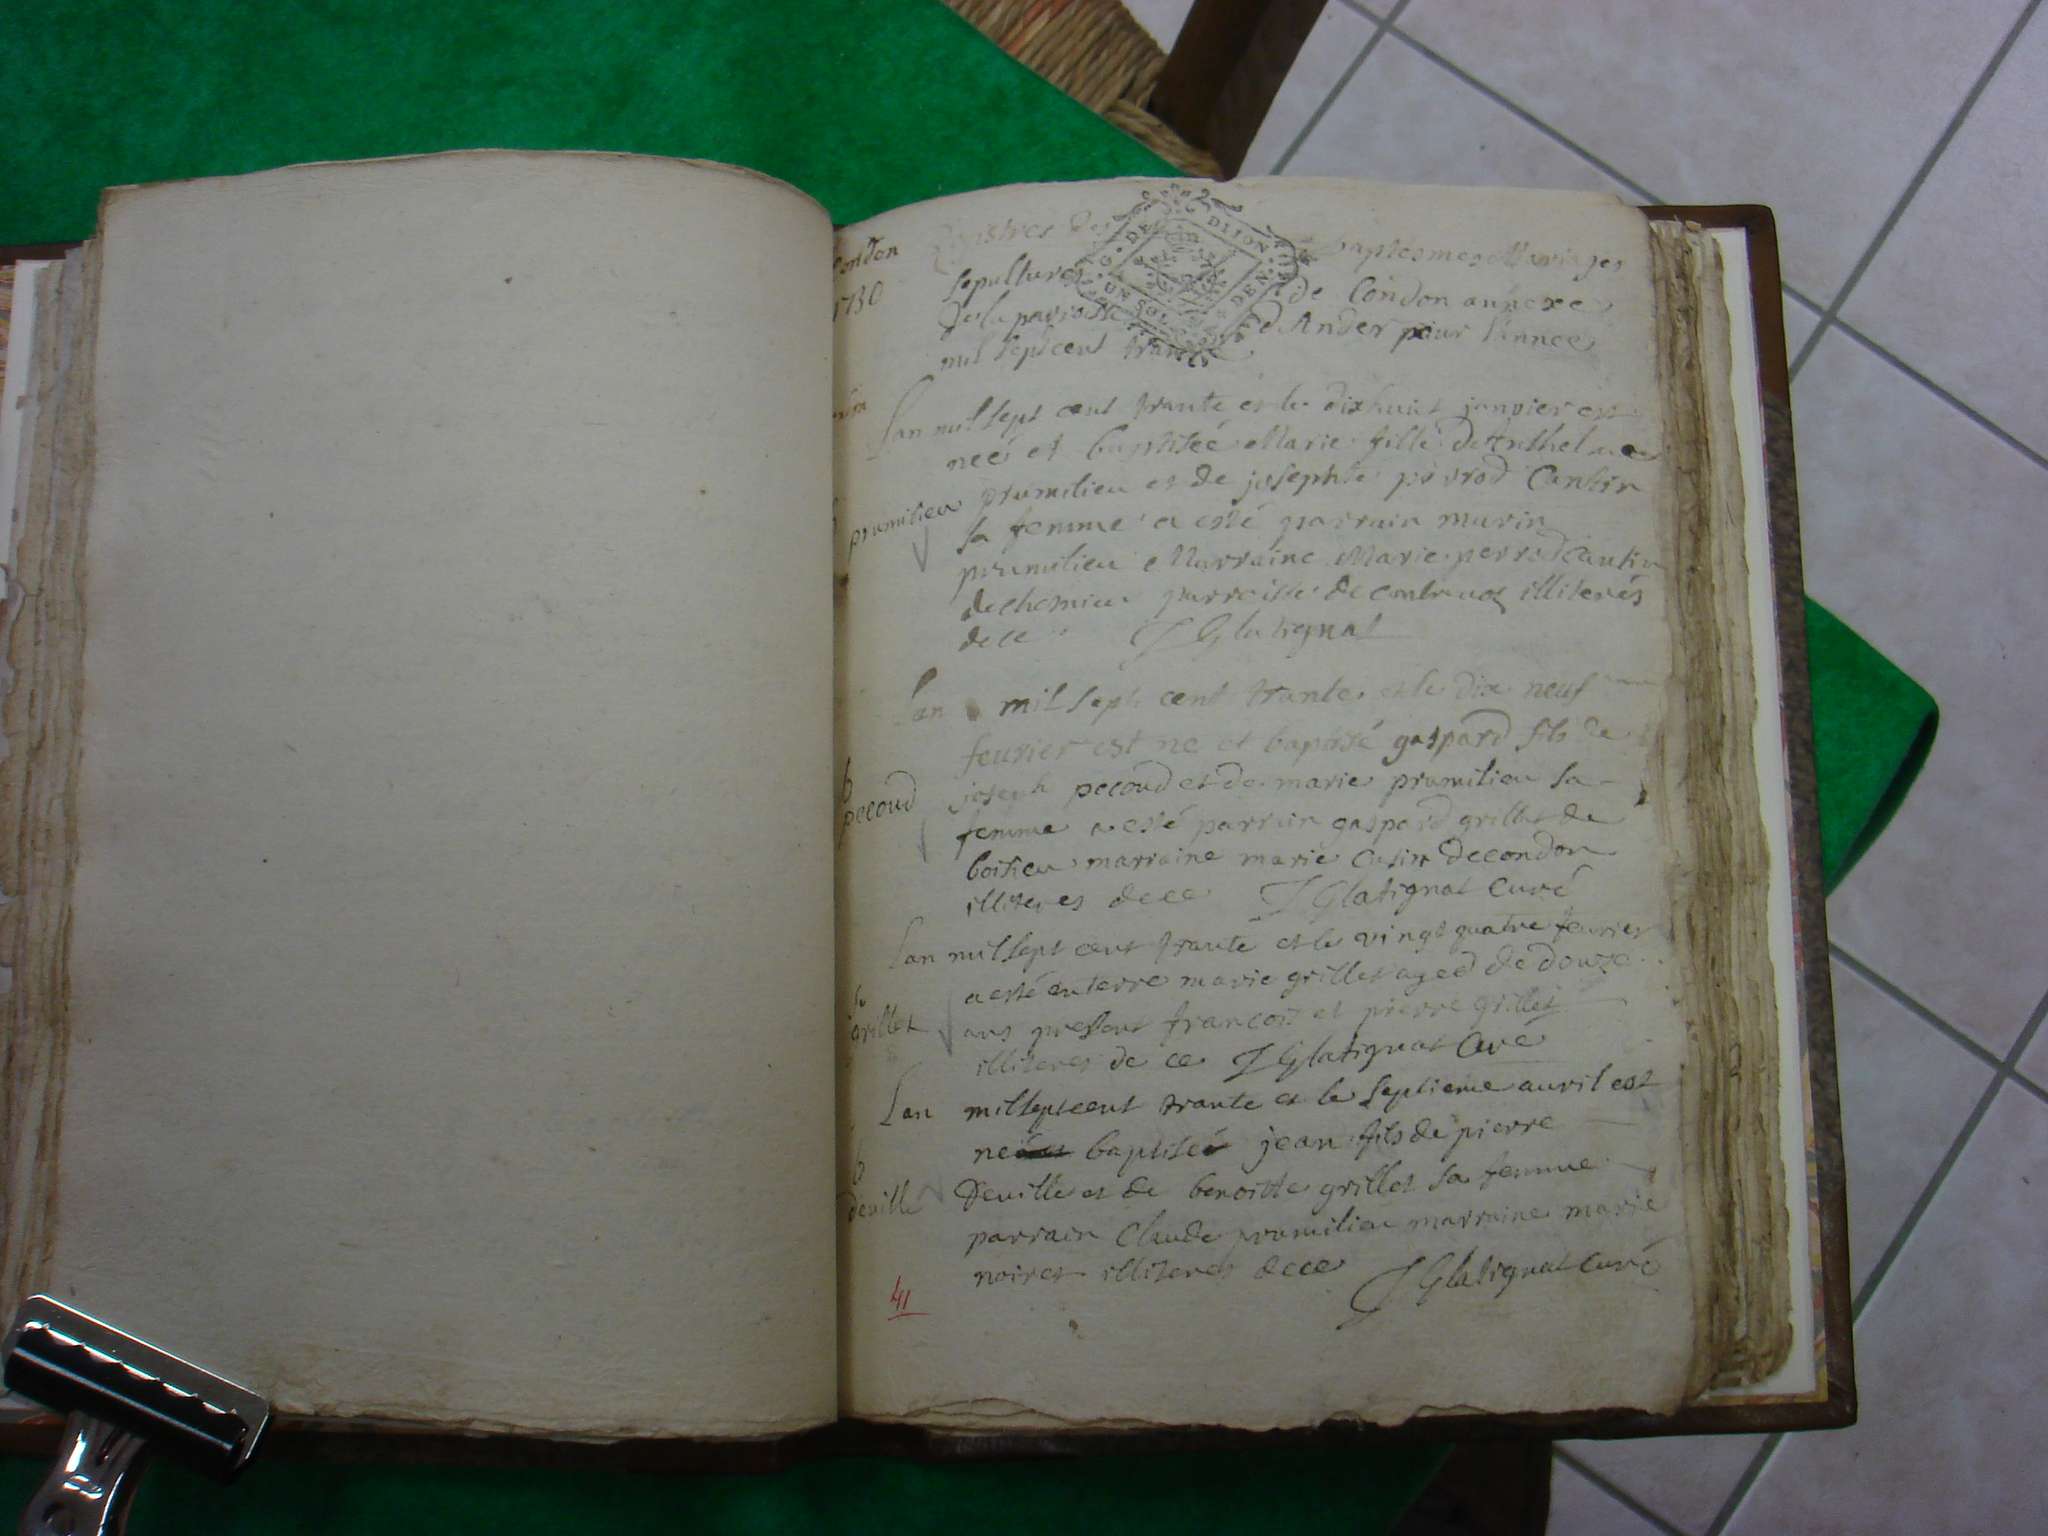 Condon
1730
Registres des baptesmes Mariages
sepultures
De la parroisse de Condon annexe
d'Ander pour l'annee
mil sept cent trante
G. DE DIJON
UN SOL DEN.
Lan mil sept cent trante et le dixhuict janvier est
neé et baptiseé Marie fille De Anthelme
prumilieu et de josephte perrod Cantin
prumilieu
sa femme a esté parrain
prumilieu Marraine Marie perrod Cantin
de parroisse de illiterés
de ce J Glatignat
Lan mil sept cent trante et le dix neuf
feurier est ne et baptisé gaspard fils de
b
pecoud
joseph pecoud et de marie prumilieu sa
femme a esté parrain gaspard grillet de
boitieu marraine marie Cusin de condon
illiteres de ce J Glatignat Curé
Lan mil sept cent trante et le vingt quatre feurier
a esté enterre marie grillet aged de douze
grillet
ans present francois et pierre grillet
illiteres de ce J Glatignat Curé
Lan mil sept cent trante et le septieme auril est
né baptisé jean fils de pierre
b
deuille
Deuille et de benoitte grillet sa femme
parrain Claude prumilieu marraine marie
noiret illiteres de ce J Glatignat curé
41